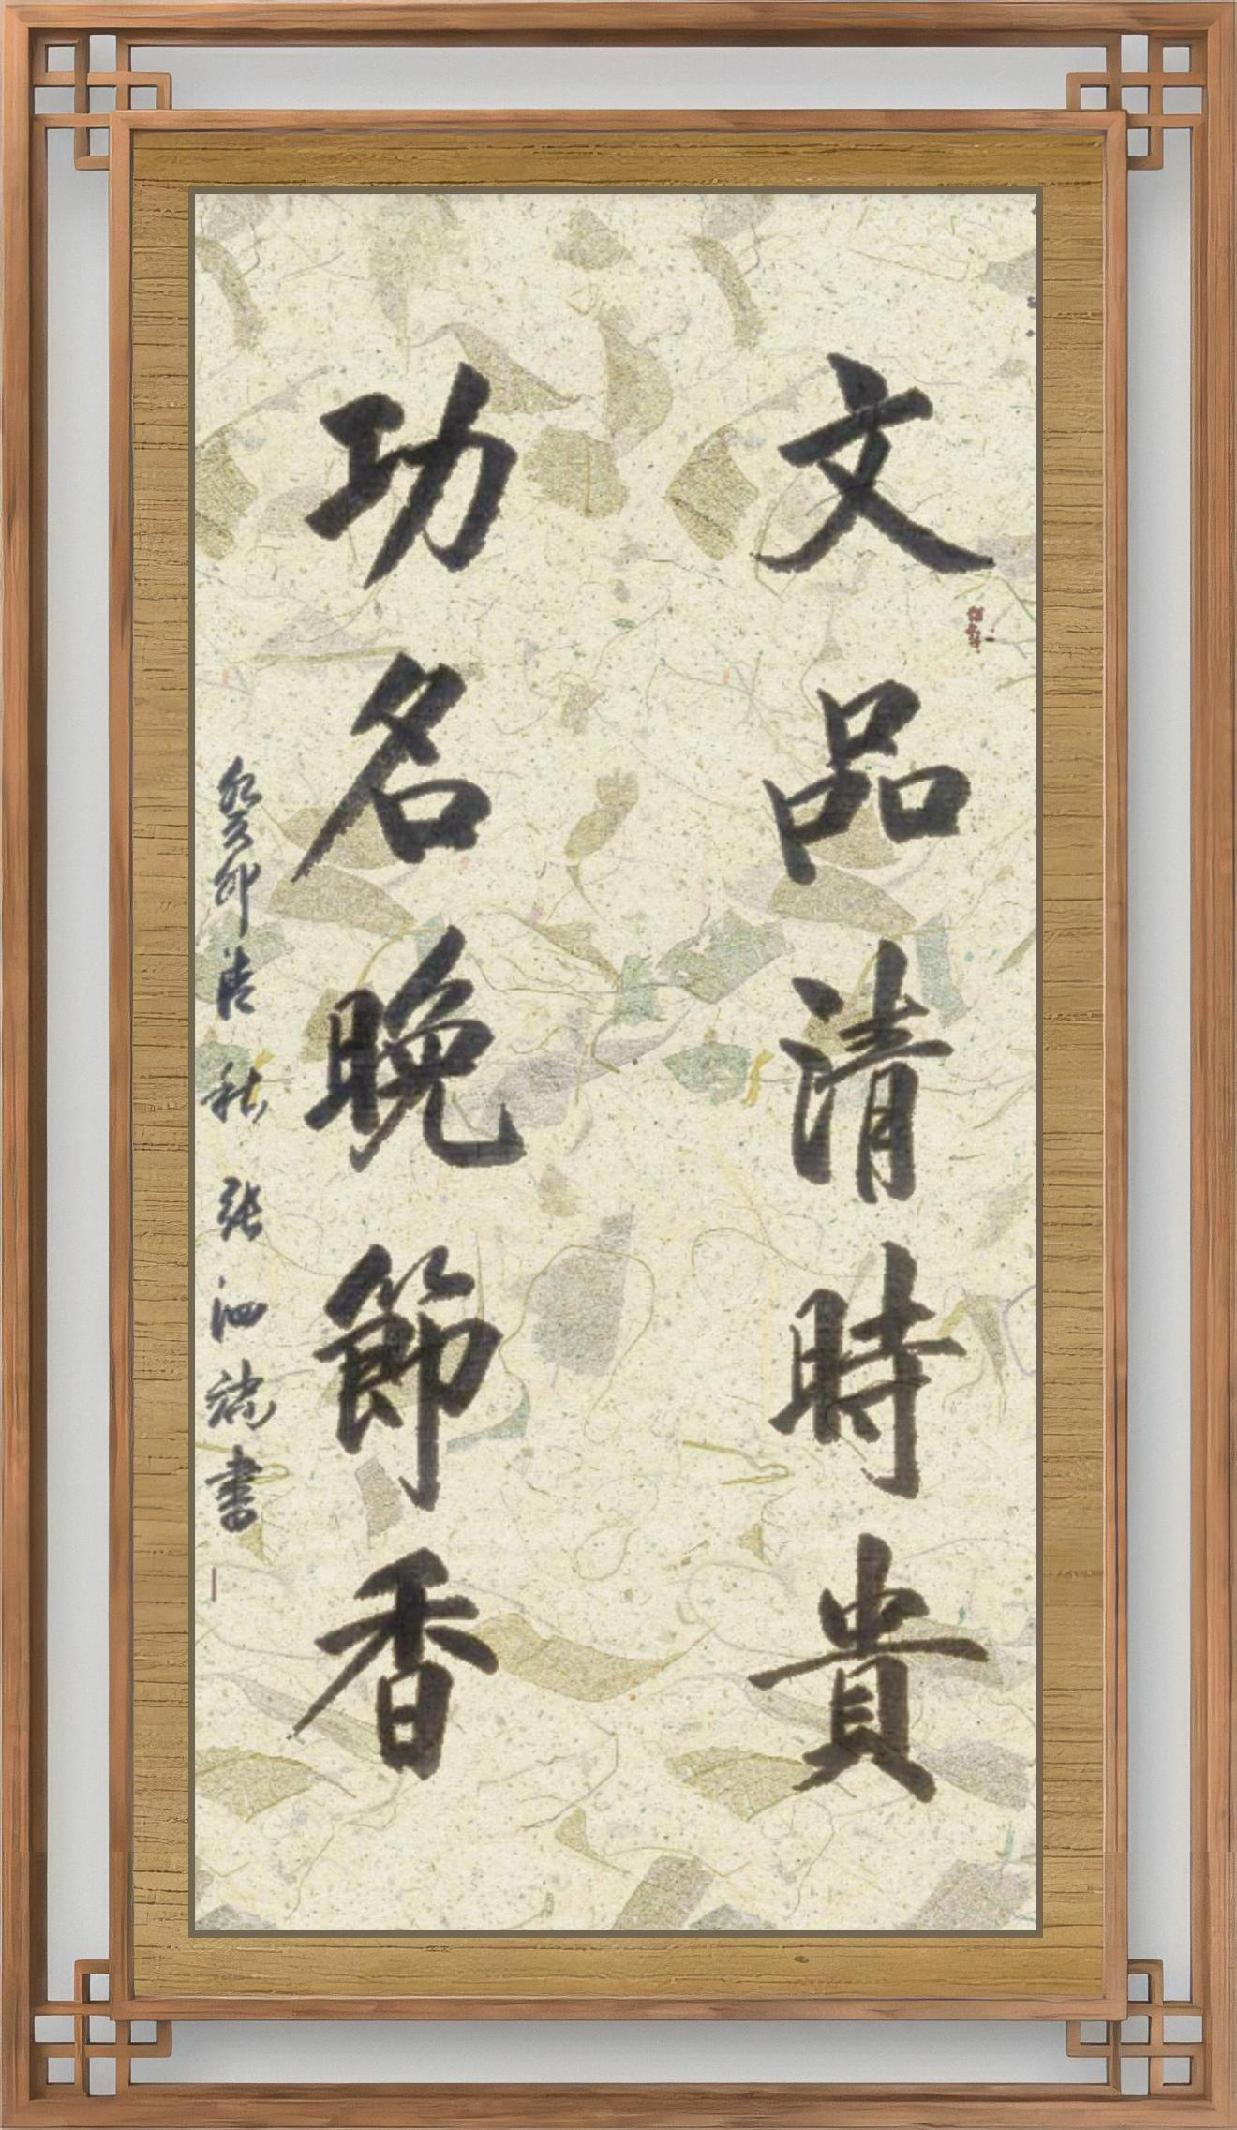 文品清時貴
功名晚節香
癸卯清秋張泗端書